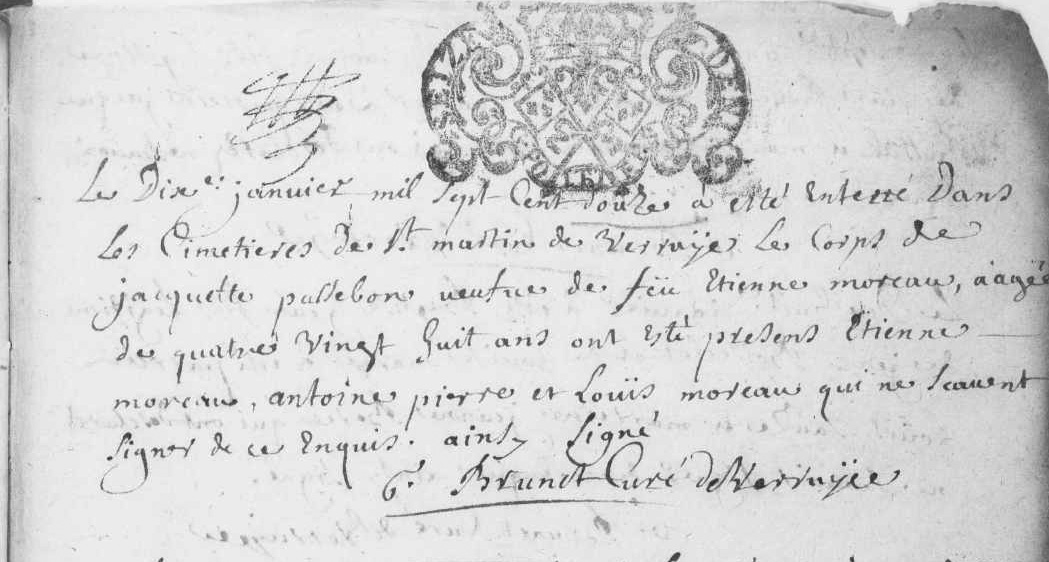 SEIZE DENIERS
POITIERS
Le Dixe. janvier mil sept Cent douze à esté Enterré Dans
Les Cimetieres de St. martin de Verruÿe Le Corps de
jacquette passebon veufue de feü Etienne moreau, aagée
de quatre Vingt huit ans ont Esté presens Etienne
moreau, antoine pierre et Loüis moreau qui ne scavent
signer de ce Enquis. ainsy signé
Brunet Curé de Verruÿe